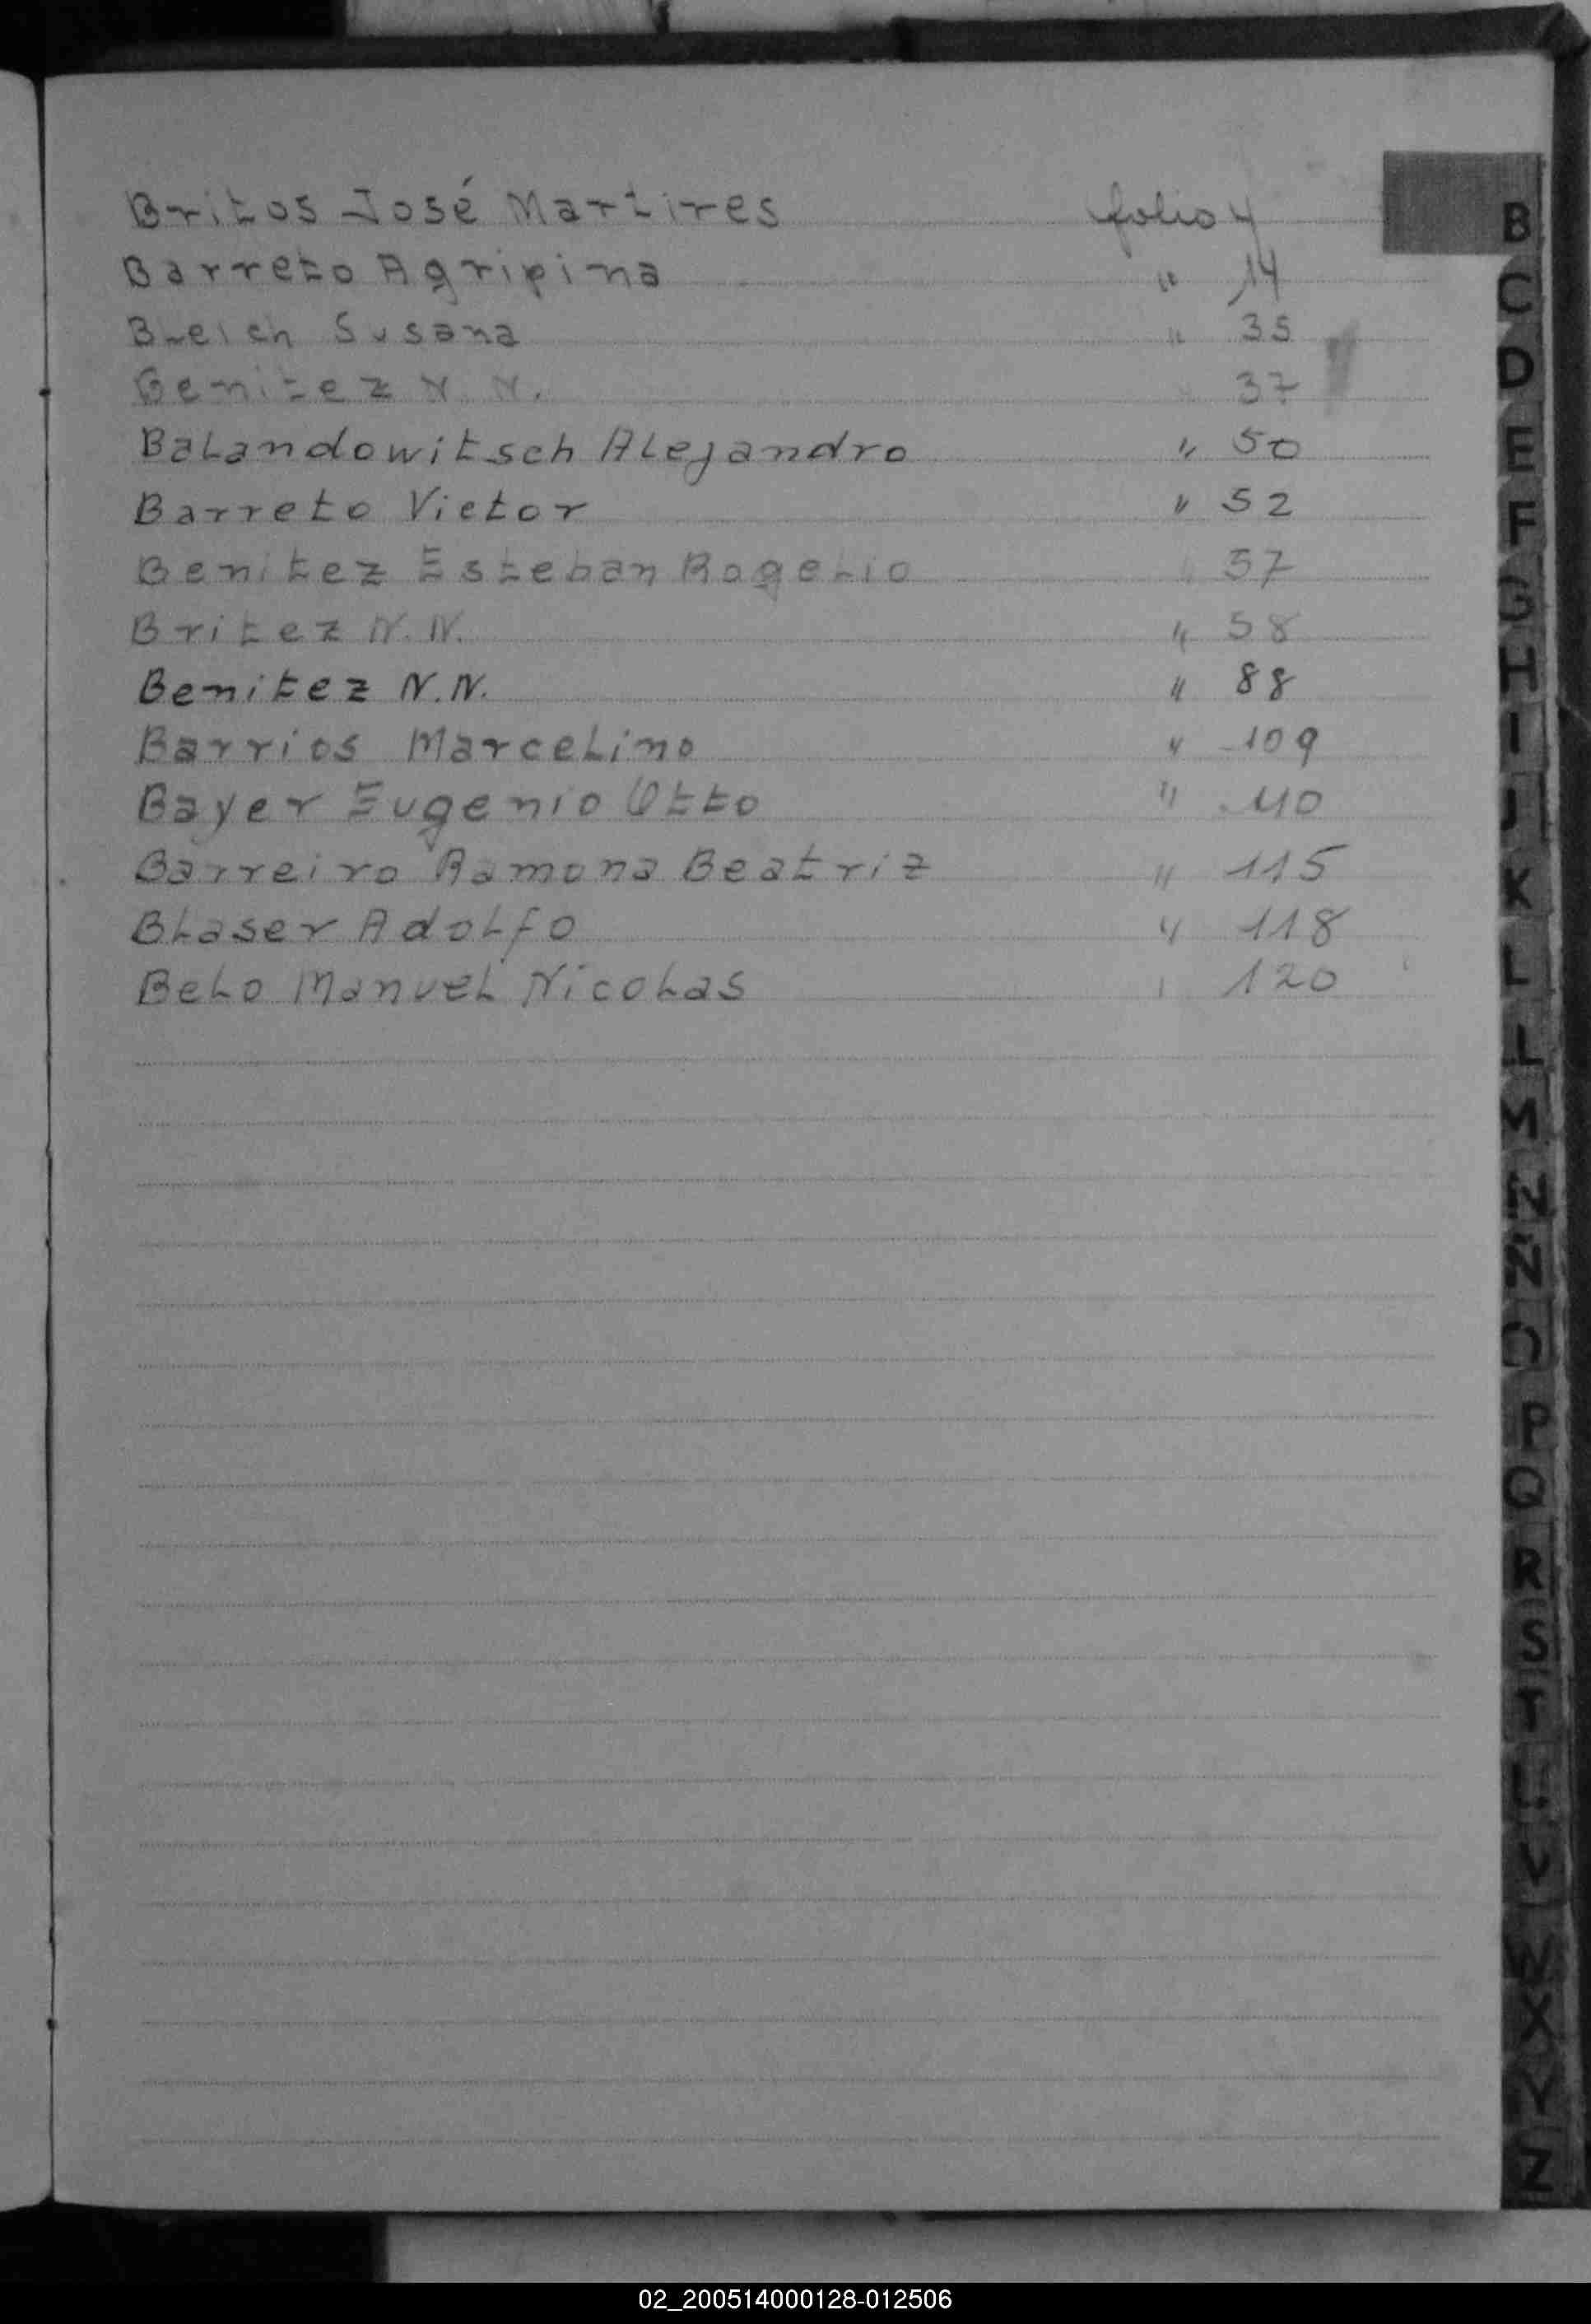 Britos José Martires folio 4
Barreto Agripina " 14
Bleich Susana " 35
Benitez N. N. " 37
Balandowitsch Alejandro " 50
Barreto Victor " 52
Benitez Esteban Rogelio " 57
Britez N. N. " 58
Benitez N. N. " 88
Barrios Marcelino " 109
Bayer Eugenio Otto " 110
Barreiro Ramona Beatriz " 115
Blaser Adolfo " 118
Belo Manuel Nicolas " 120
B
C
D
E
F
G
H
I
J
K
L
L
M
N
N
O
P
Q
R
S
T
U
V
W
X
Y
Z
02_200514000128-012506